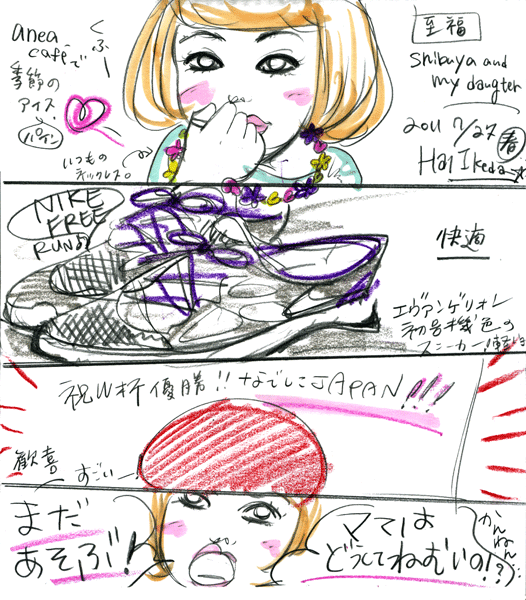 くふー
anea
caféで
季節の
アイス
パイン
いつもの
ネックレス。
至福
Shibuya and
my daugter
2011 7/27
春
Hal Ikeda
NIKE
FREE
RUN
快適
エヴァンゲリオン
初号機色の
スニーカー!軽い
祝W杯優勝!!なでしこJAPAN!!!
歓喜
すごい
まだ
あそぶ!
ママは
どうしてねむいの!?
かんねん